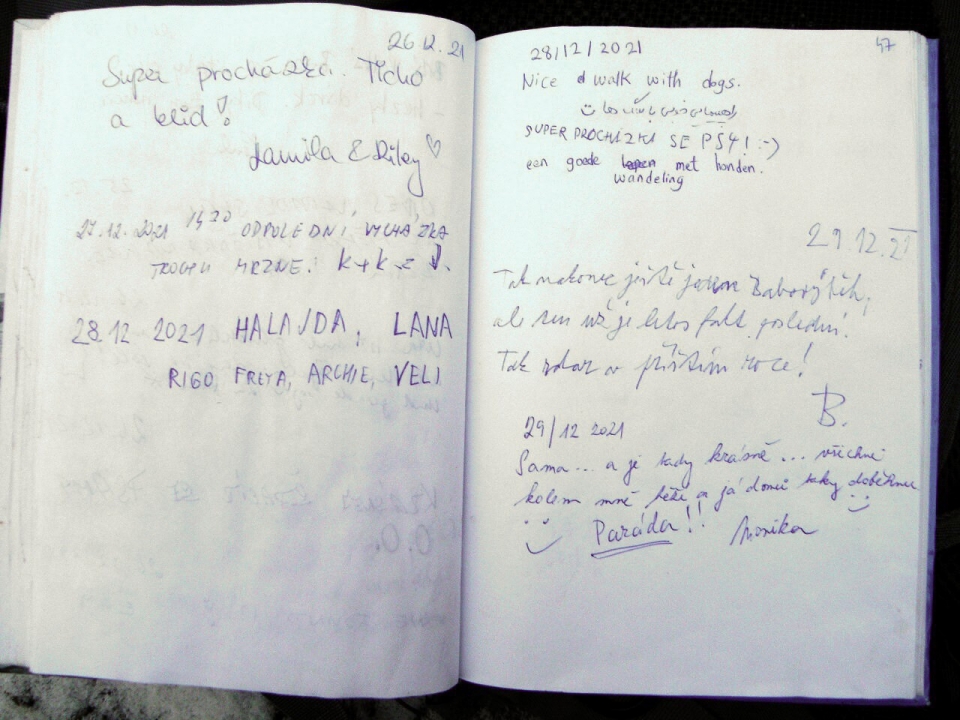 26.12.21
Super procházka. Ticho
a klid!
Jamila & Riley ♡
27.12.2021 14 30 ODPOLEDNÍ VYCHÁZKA
TROCHU MRZNE. K+K z
28.12 2021 HALAJDA, LANA
RIGO FREYA, ARCHIE, VELI
47
28/12/2021
Nice d walk with dogs.
SUPER PROCHÁZKA SE PSY! :-)
een goede met honden.
wandeling
29.12.21
Tak nakonec ještě jeden Baborýtěk,
ale ten už je letos fakt poslední.
Tak zdar v příštím roce!
B.
29/12 2021
Sama... a je tady krásně... všichni
kolem mně běží a já domů taky doběhnu
Paráda!! Monika